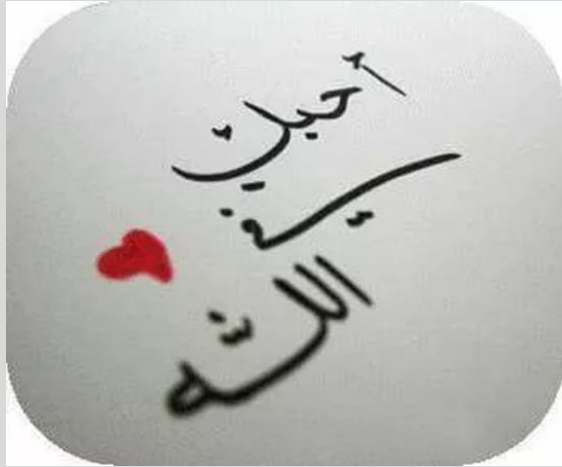 أحبك
في
الله